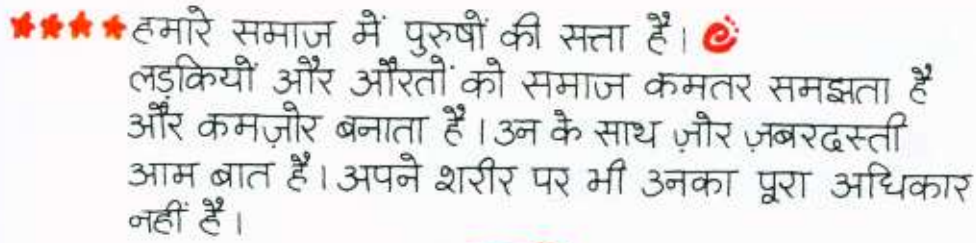 हमारे समाज में पुरुषों की सत्ता है।
लड़कियों और औरतों को समाज कमतर समझता है
और कमज़ोर बनाता है। उन के साथ ज़ोर ज़बरदस्ती
आम बात है। अपने शरीर पर भी उनका पूरा अधिकार
नहीं है।